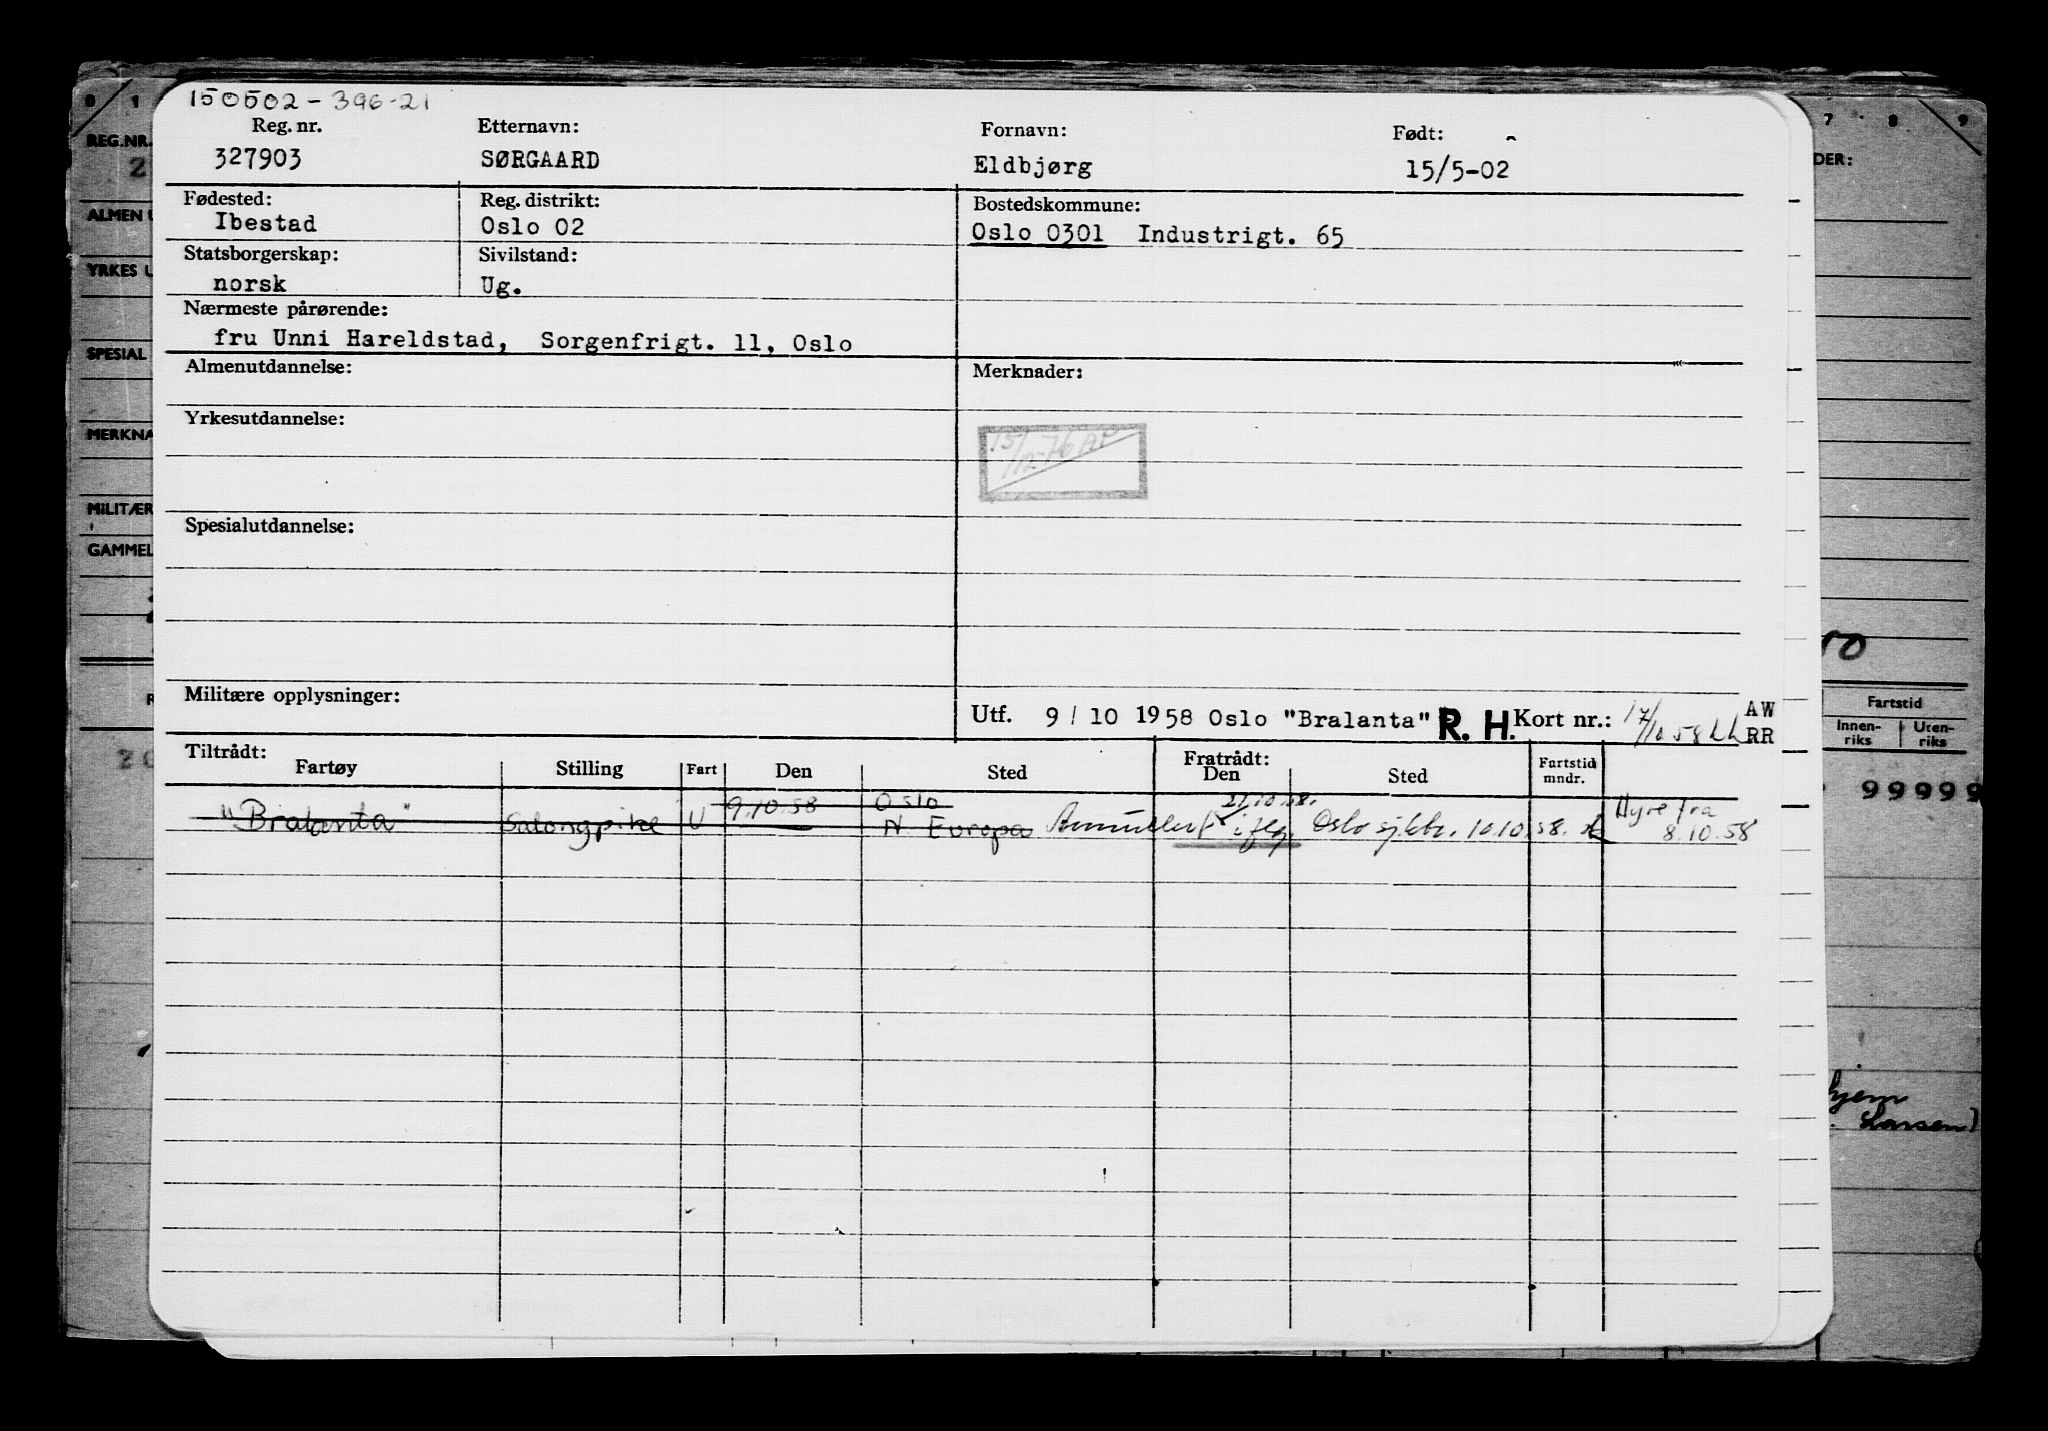 150502-396-21
Reg. nr. Etternavn: Fornavn: Født:
327903 SØRGAARD Eldbjørg 15/5-02
Fødested: Reg. distrikt: Bostedskommune:
Ibestad Oslo 02 Oslo 0301 Industrigt. 65
Statsborgerskap: Sivilstand:
norsk Ug.
Nærmeste pårørende:
fru Unni Hareldstad, Sorgenfrigt. 11, Oslo
Almenutdannelse: Merknader:
Yrkesutdannelse:
15/12-76
Spesialutdannelse:
Militære opplysninger:
Utf. 9/10 1958 Oslo "Bralanta" R. H. Kort nr.: 17/10 58 AW
RR
Tiltrådt: Fratrådt:
Fartøy Stilling Fart Den Sted Den Sted Fartstid mndr.
"Bralanta" Salongpike U 9.10.58 Oslo
N Europa Annullert iflg. Oslo sj.ktr. 10.10.58.
Hyre fra
8.10.58
0 1
REG.NR.
2
ALMEN U
YRKES U
SPESIAL
MERKNA
MILITÆR
GAMMEL
7 8 9
DER:
Fartstid
Innen-
riks
Uten-
riks
99999
hjem
Larsen)